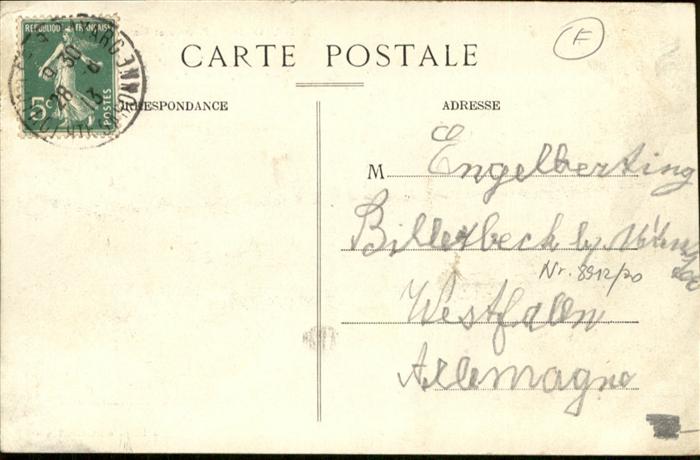 REPUBLIQUE FRANÇAISE
5c POSTES
9 30
28 - 8
13
CARTE POSTALE
F
CORRESPONDANCE
ADRESSE
M Engelberting
Billerbeck by
Nr. 8912/20
Westfalen
Allemagne